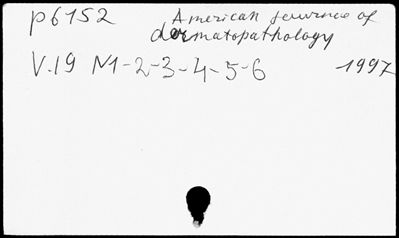 p6152 American journal of
dermatopathology
V.19 N1-2-3-4-5-6 1997